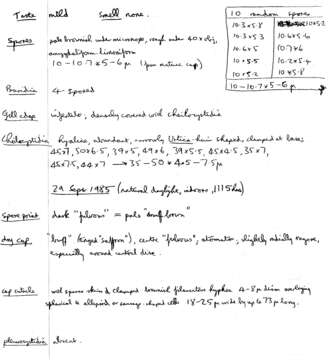 Taste mild Smell none.
10 random spores
10·3×5·8
10·3×5·3 10·6×5·6
10·6×5 10·7×6
10×5·5 10·2×5·4
10×5·2 10×5·8
10-10·7×5-6µ
Spores pale brownish under microscope, rough under 40× obj,
amygdaliform-limoniform
10-10·7×5-6µ (from mature cap)
Basidia 4-spored
Gill edge densely covered with cheilocystidia
Cheilocystidia hyaline, abundant, narrowly Urtica-hair shaped, clamped at base;
45×7, 50×6·5, 39×5, 49×6, 39×5·5, 45×4·5, 35×7,
45×7·5, 44×7 → 35-50×4·5-7·5µ
29 Sept 1985 (natural daylight, indoors, 1115hrs)
spore print dark "fulvous" = pale "snuff brown"
dry cap "buff" (tinged "saffron"), centre "fulvous", slightly radially rugose,
especially around central disc.
cap cuticle well spaced clamped brownish filamentous hyphae 4-8µ diam overlaying
spherical to ellipsoid or sausage-shaped cells 18-25µ wide by up to 73µ long.
pleurocystidia absent.